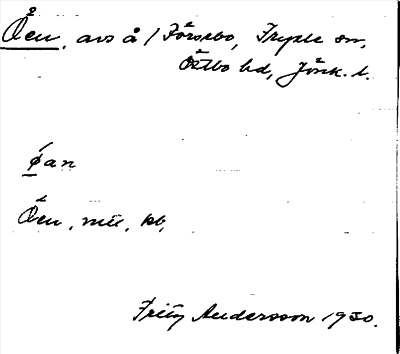 Åen, avs å / Fårsebo, Fryele sn,
Östbo hd, Jönk. l.
øan
Åen, mtl, kb,
Fritz Andersson 1930.